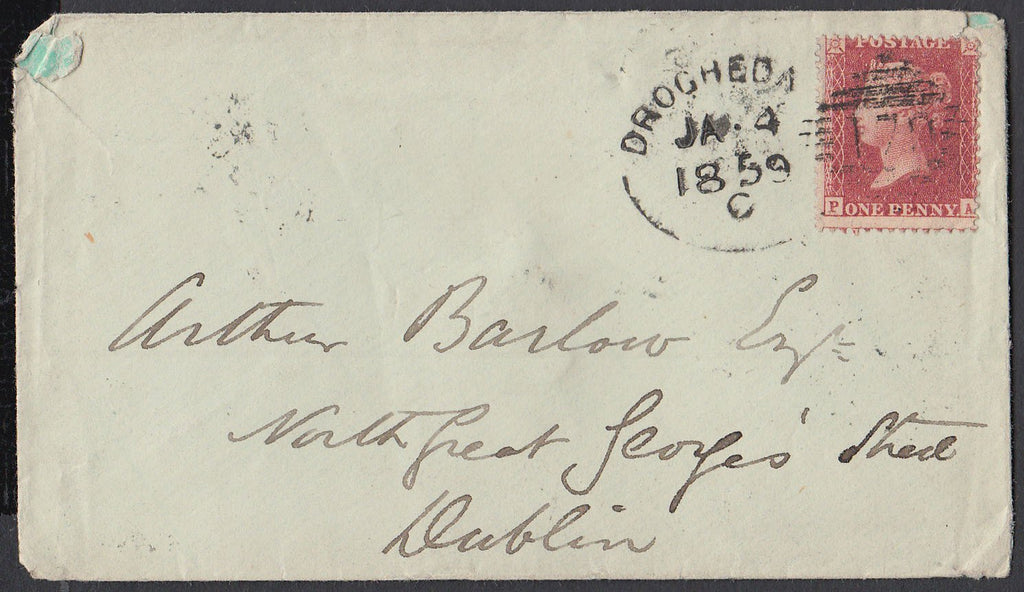 POSTAGE
DROGHEDA
JA · 4
1859
C
178
P ONE PENNY A
Arthur Barlow Esqr
North Great George's Street
Dublin